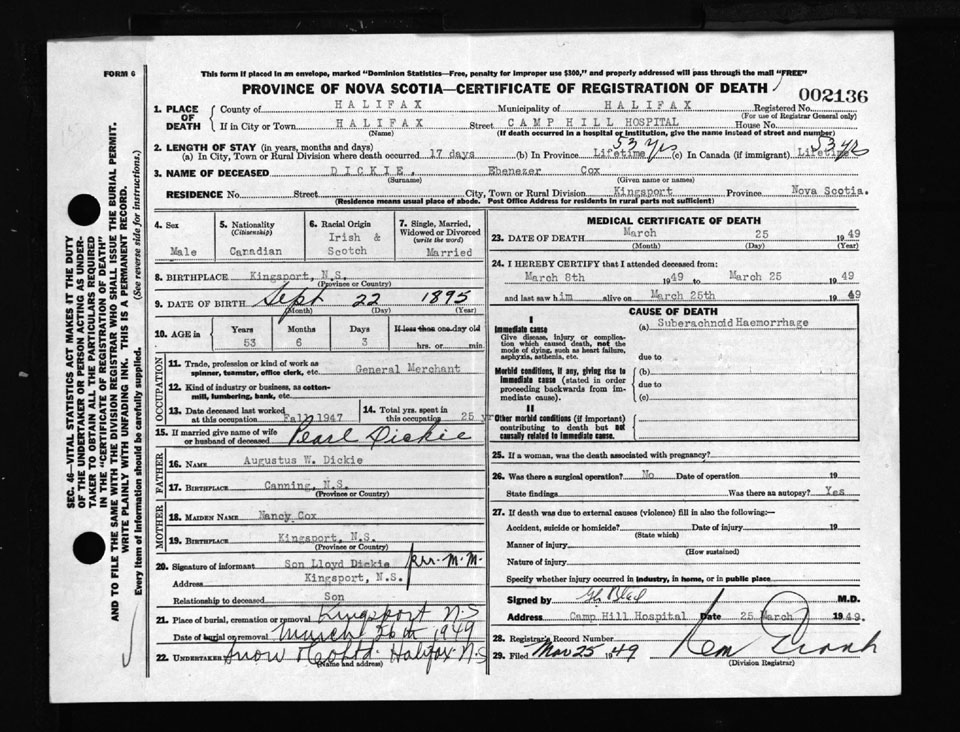 FORM 6
This form if placed in an envelope, marked "Dominion Statistics—Free, penalty for improper use $300," and properly addressed will pass through the mail "FREE"
PROVINCE OF NOVA SCOTIA—CERTIFICATE OF REGISTRATION OF DEATH
002136
1. PLACE OF DEATH
County of HALIFAX Municipality of HALIFAX Registered No.
(For use of Registrar General only)
If in City or Town HALIFAX Street CAMP HILL HOSPITAL House No.
(Name) (If death occurred in a hospital or institution, give the name instead of street and number)
2. LENGTH OF STAY (in years, months and days)
53 yrs 53 yrs
(a) In City, Town or Rural Division where death occurred 17 days (b) In Province Lifetime (c) In Canada (if immigrant) Lifetime
3. NAME OF DECEASED DICKIE, Ebenezer Cox
(Surname) (Given name or names)
RESIDENCE No. Street City, Town or Rural Division Kingsport Province Nova Scotia.
(Residence means usual place of abode. Post Office Address for residents in rural parts not sufficient)
4. Sex
Male
5. Nationality
(Citizenship)
Canadian
6. Racial Origin
Irish &
Scotch
7. Single, Married, Widowed or Divorced
(write the word)
Married
8. BIRTHPLACE Kingsport, N.S.
(Province or Country)
9. DATE OF BIRTH Sept 22 1895
(Month) (Day) (Year)
10. AGE in
Years Months Days If less than one day old
53 6 3 hrs. or min.
OCCUPATION
11. Trade, profession or kind of work as
spinner, teamster, office clerk, etc. General Merchant
12. Kind of industry or business, as cotton-
mill, lumbering, bank, etc.
13. Date deceased last worked
at this occupation Fall 1947
14. Total yrs. spent in
this occupation 25 yr
15. If married give name of wife
or husband of deceased Pearl Dickie
FATHER
16. NAME Augustus W. Dickie
17. BIRTHPLACE Canning, N.S.
(Province or Country)
MOTHER
18. MAIDEN NAME Nancy Cox
19. BIRTHPLACE Kingsport, N.S.
(Province or Country)
20. Signature of informant Son Lloyd Dickie
Address Kingsport, N.S.
Relationship to deceased Son
21. Place of burial, cremation or removal Kingsport N.S
Date of burial or removal March 26th 1949
22. UNDERTAKER Snow & Co Ltd. Halifax N.S
(Name and address)
MEDICAL CERTIFICATE OF DEATH
23. DATE OF DEATH March 25 1949
(Month) (Day) (Year)
24. I HEREBY CERTIFY that I attended deceased from:
March 8th 1949 to March 25 1949
and last saw him alive on March 25th 1949
CAUSE OF DEATH
I
Immediate cause
(a) Suberachnoid Haemorrhage
Give disease, injury or complica-
tion which caused death, not the
mode of dying, such as heart failure,
asphyxia, asthenia, etc.
due to
Morbid conditions, if any, giving rise to
immediate cause (stated in order
proceeding backwards from im-
mediate cause).
(b)
due to
(c)
II
Other morbid conditions (if important)
contributing to death but not
causally related to immediate cause.
25. If a woman, was the death associated with pregnancy?
26. Was there a surgical operation? No Date of operation 19
State findings Was there an autopsy? Yes
27. If death was due to external causes (violence) fill in also the following:—
Accident, suicide or homicide? Date of injury 19
(State which)
Manner of injury
(How sustained)
Nature of injury
Specify whether injury occurred in industry, in home, or in public place
Signed by M.D.
Address Camp Hill Hospital Date 25 March 1949.
28. Registrar's Record Number
29. Filed Mar 25 1949
(Division Registrar)
SEC. 46—VITAL STATISTICS ACT MAKES IT THE DUTY
OF THE UNDERTAKER OR PERSON ACTING AS UNDER-
TAKER TO OBTAIN ALL THE PARTICULARS REQUIRED
IN THE "CERTIFICATE OF REGISTRATION OF DEATH"
AND TO FILE THE SAME WITH THE DIVISION REGISTRAR WHO SHALL ISSUE THE BURIAL PERMIT.
WRITE PLAINLY WITH UNFADING INK. THIS IS A PERMANENT RECORD.
Every item of information should be carefully supplied. (See reverse side for instructions.)